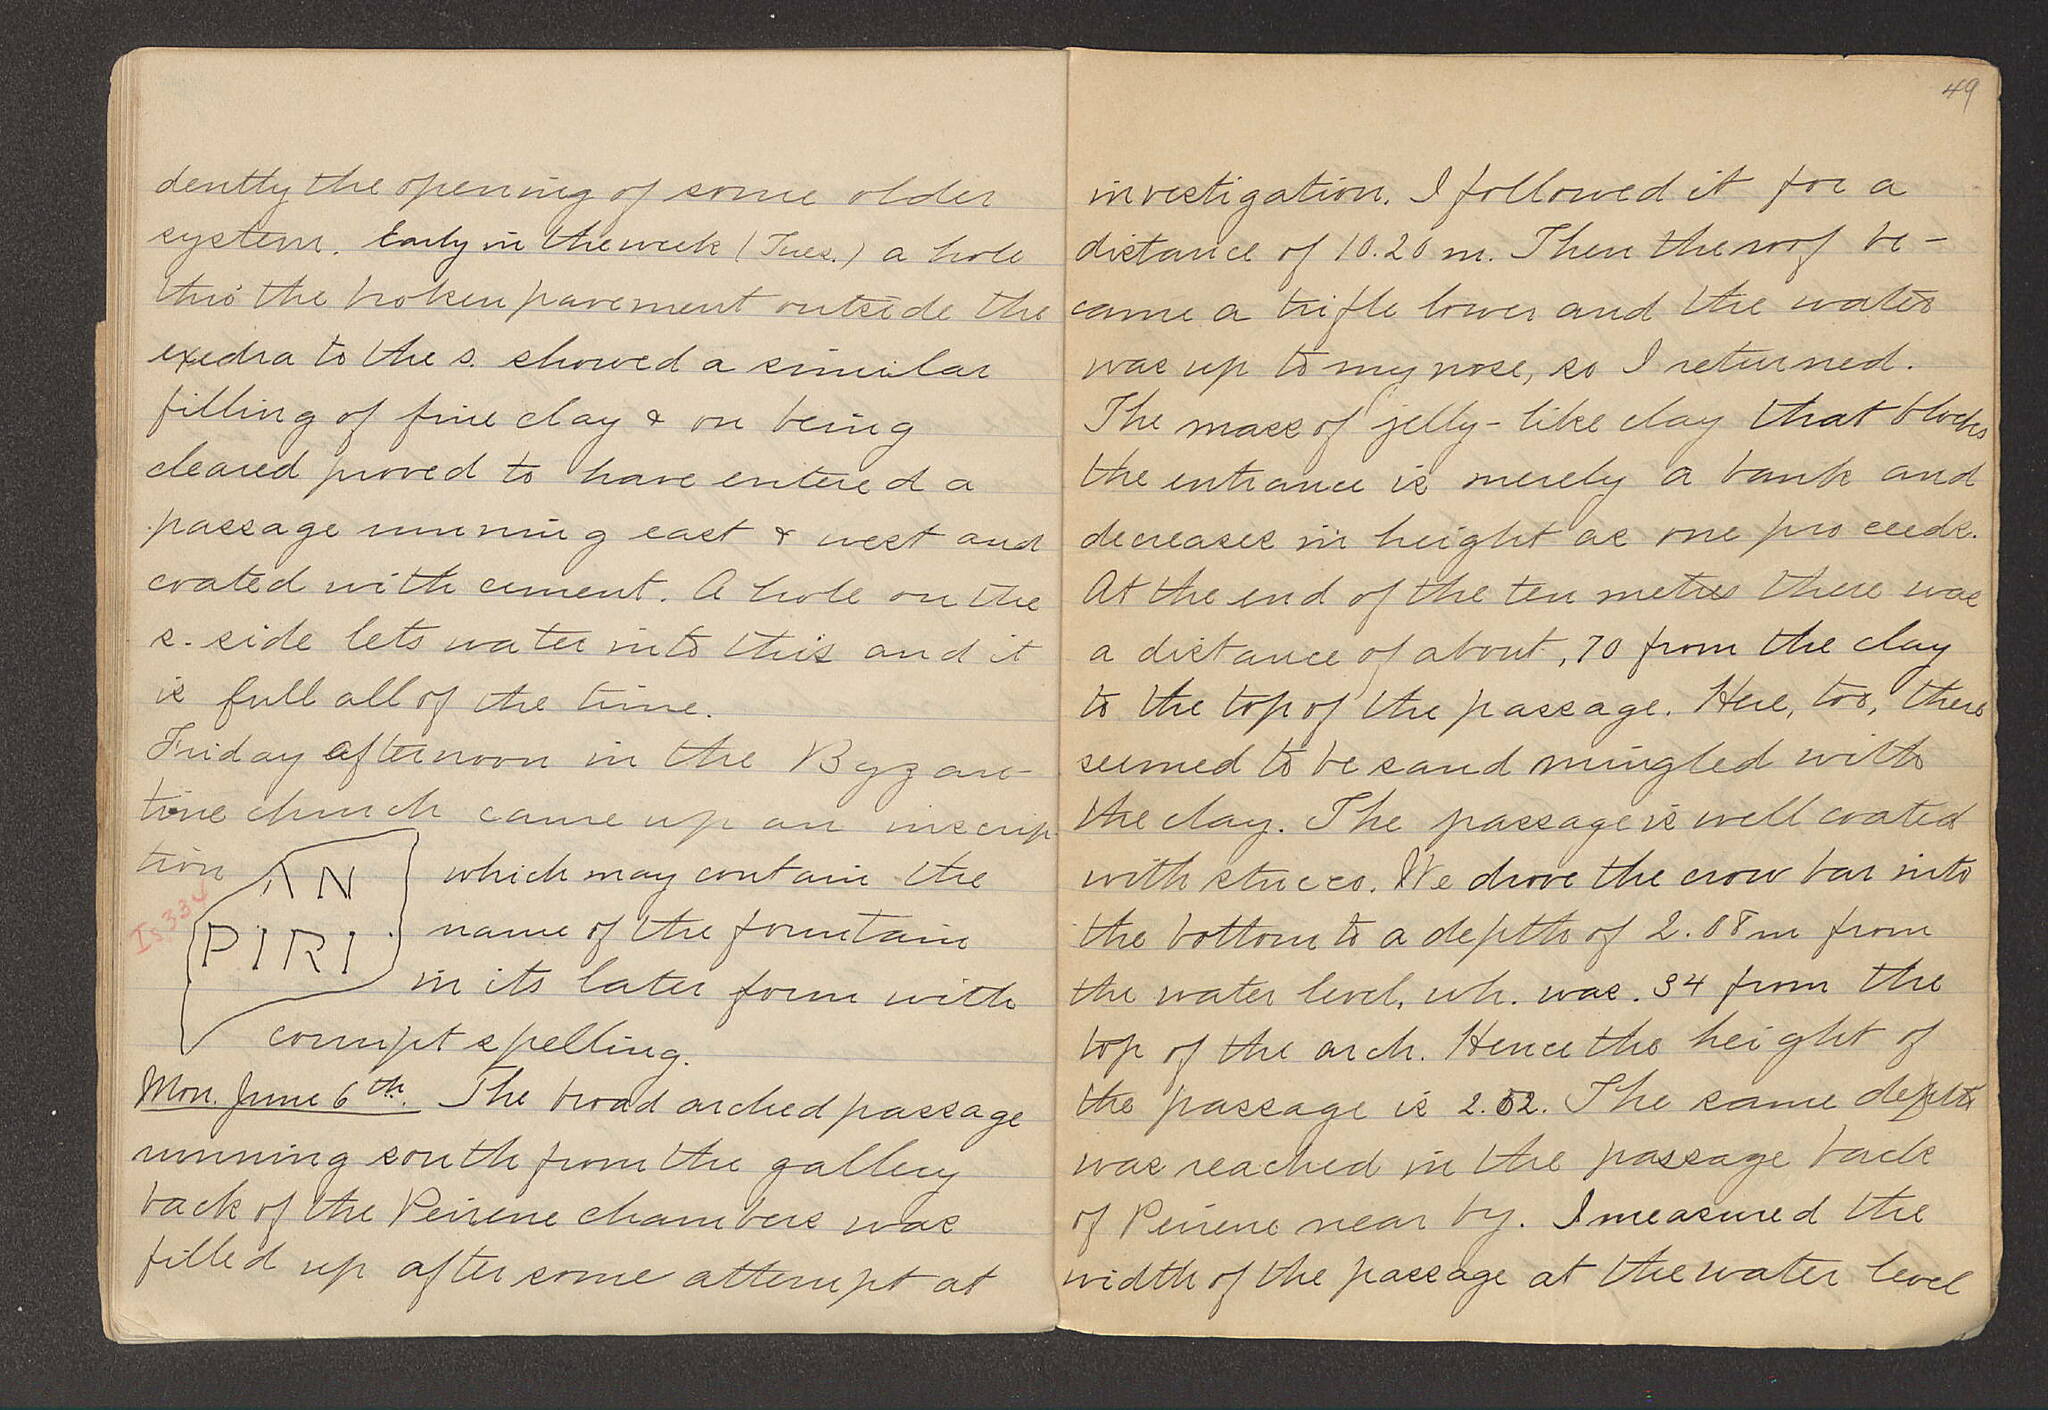 dently the opening of some older
system. Early in the week (Tues.) a hole
thro' the broken pavement outside the
exedra to the s. showed a similar
filling of fine clay & on being
cleared proved to have entered a
passage running east & west and
coated with cement. A hole on the
s. side lets water into this and it
is full all of the time.
Friday afternoon in the Byzan-
tine church came up an inscrip-
tion
ΛN
PIRI
I, 334
which may contain the
name of the fountain
in its later form with
corrupt spelling.
Mon. June 6th. The broad arched passage
running south from the gallery
back of the Peirene chambers was
filled up after some attempt at
49
investigation. I followed it for a
distance of 10.20 m. Then the roof be-
came a trifle lower and the water
was up to my nose, so I returned.
The mass of jelly-like clay that blocks
the entrance is merely a bank and
decreases in height as one proceeds.
At the end of the ten metres there was
a distance of about .70 from the clay
to the top of the passage. Here, too, there
seemed to be sand mingled with
the clay. The passage is well coated
with stucco. We drove the crow bar into
the bottom to a depth of 2.08 m from
the water level, wh. was .34 from the
top of the arch. Hence the height of
the passage is 2.52. The same depth
was reached in the passage back
of Peirene near by. I measured the
width of the passage at the water level